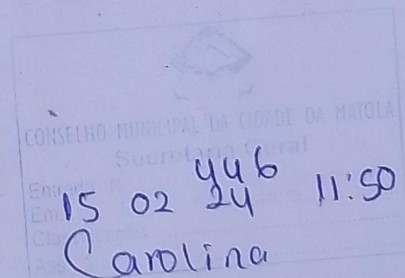 CONSELHO MUNICIPAL DA CIDADE DA MATOLA
Secretaria Geral
Entrada 446
Em 15 02 24 11:50
Carolina